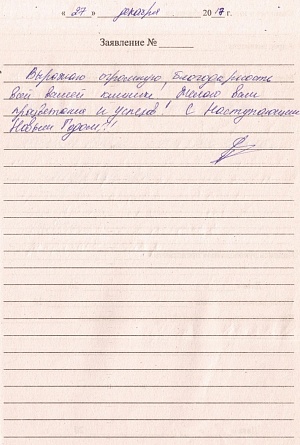 « 27 » декабря 2017 г.
Заявление №
Выражаю огромную благодарность
всей вашей клинике, Желаю вам
процветания и успехов С Наступающим
Новым Годом!!